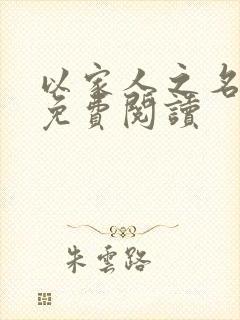 以家人之名
免費閱讀
朱雲路